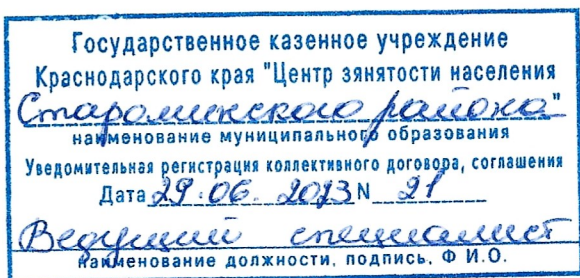 Государственное казенное учреждение
Краснодарского края "Центр зянятости населения
Староминского района"
наименование муниципального образования
Уведомительная регистрация коллективного договора, соглашения
Дата 29.06. 2013 N 21
Ведущий специалист
наименование должности, подпись, Ф И.О.